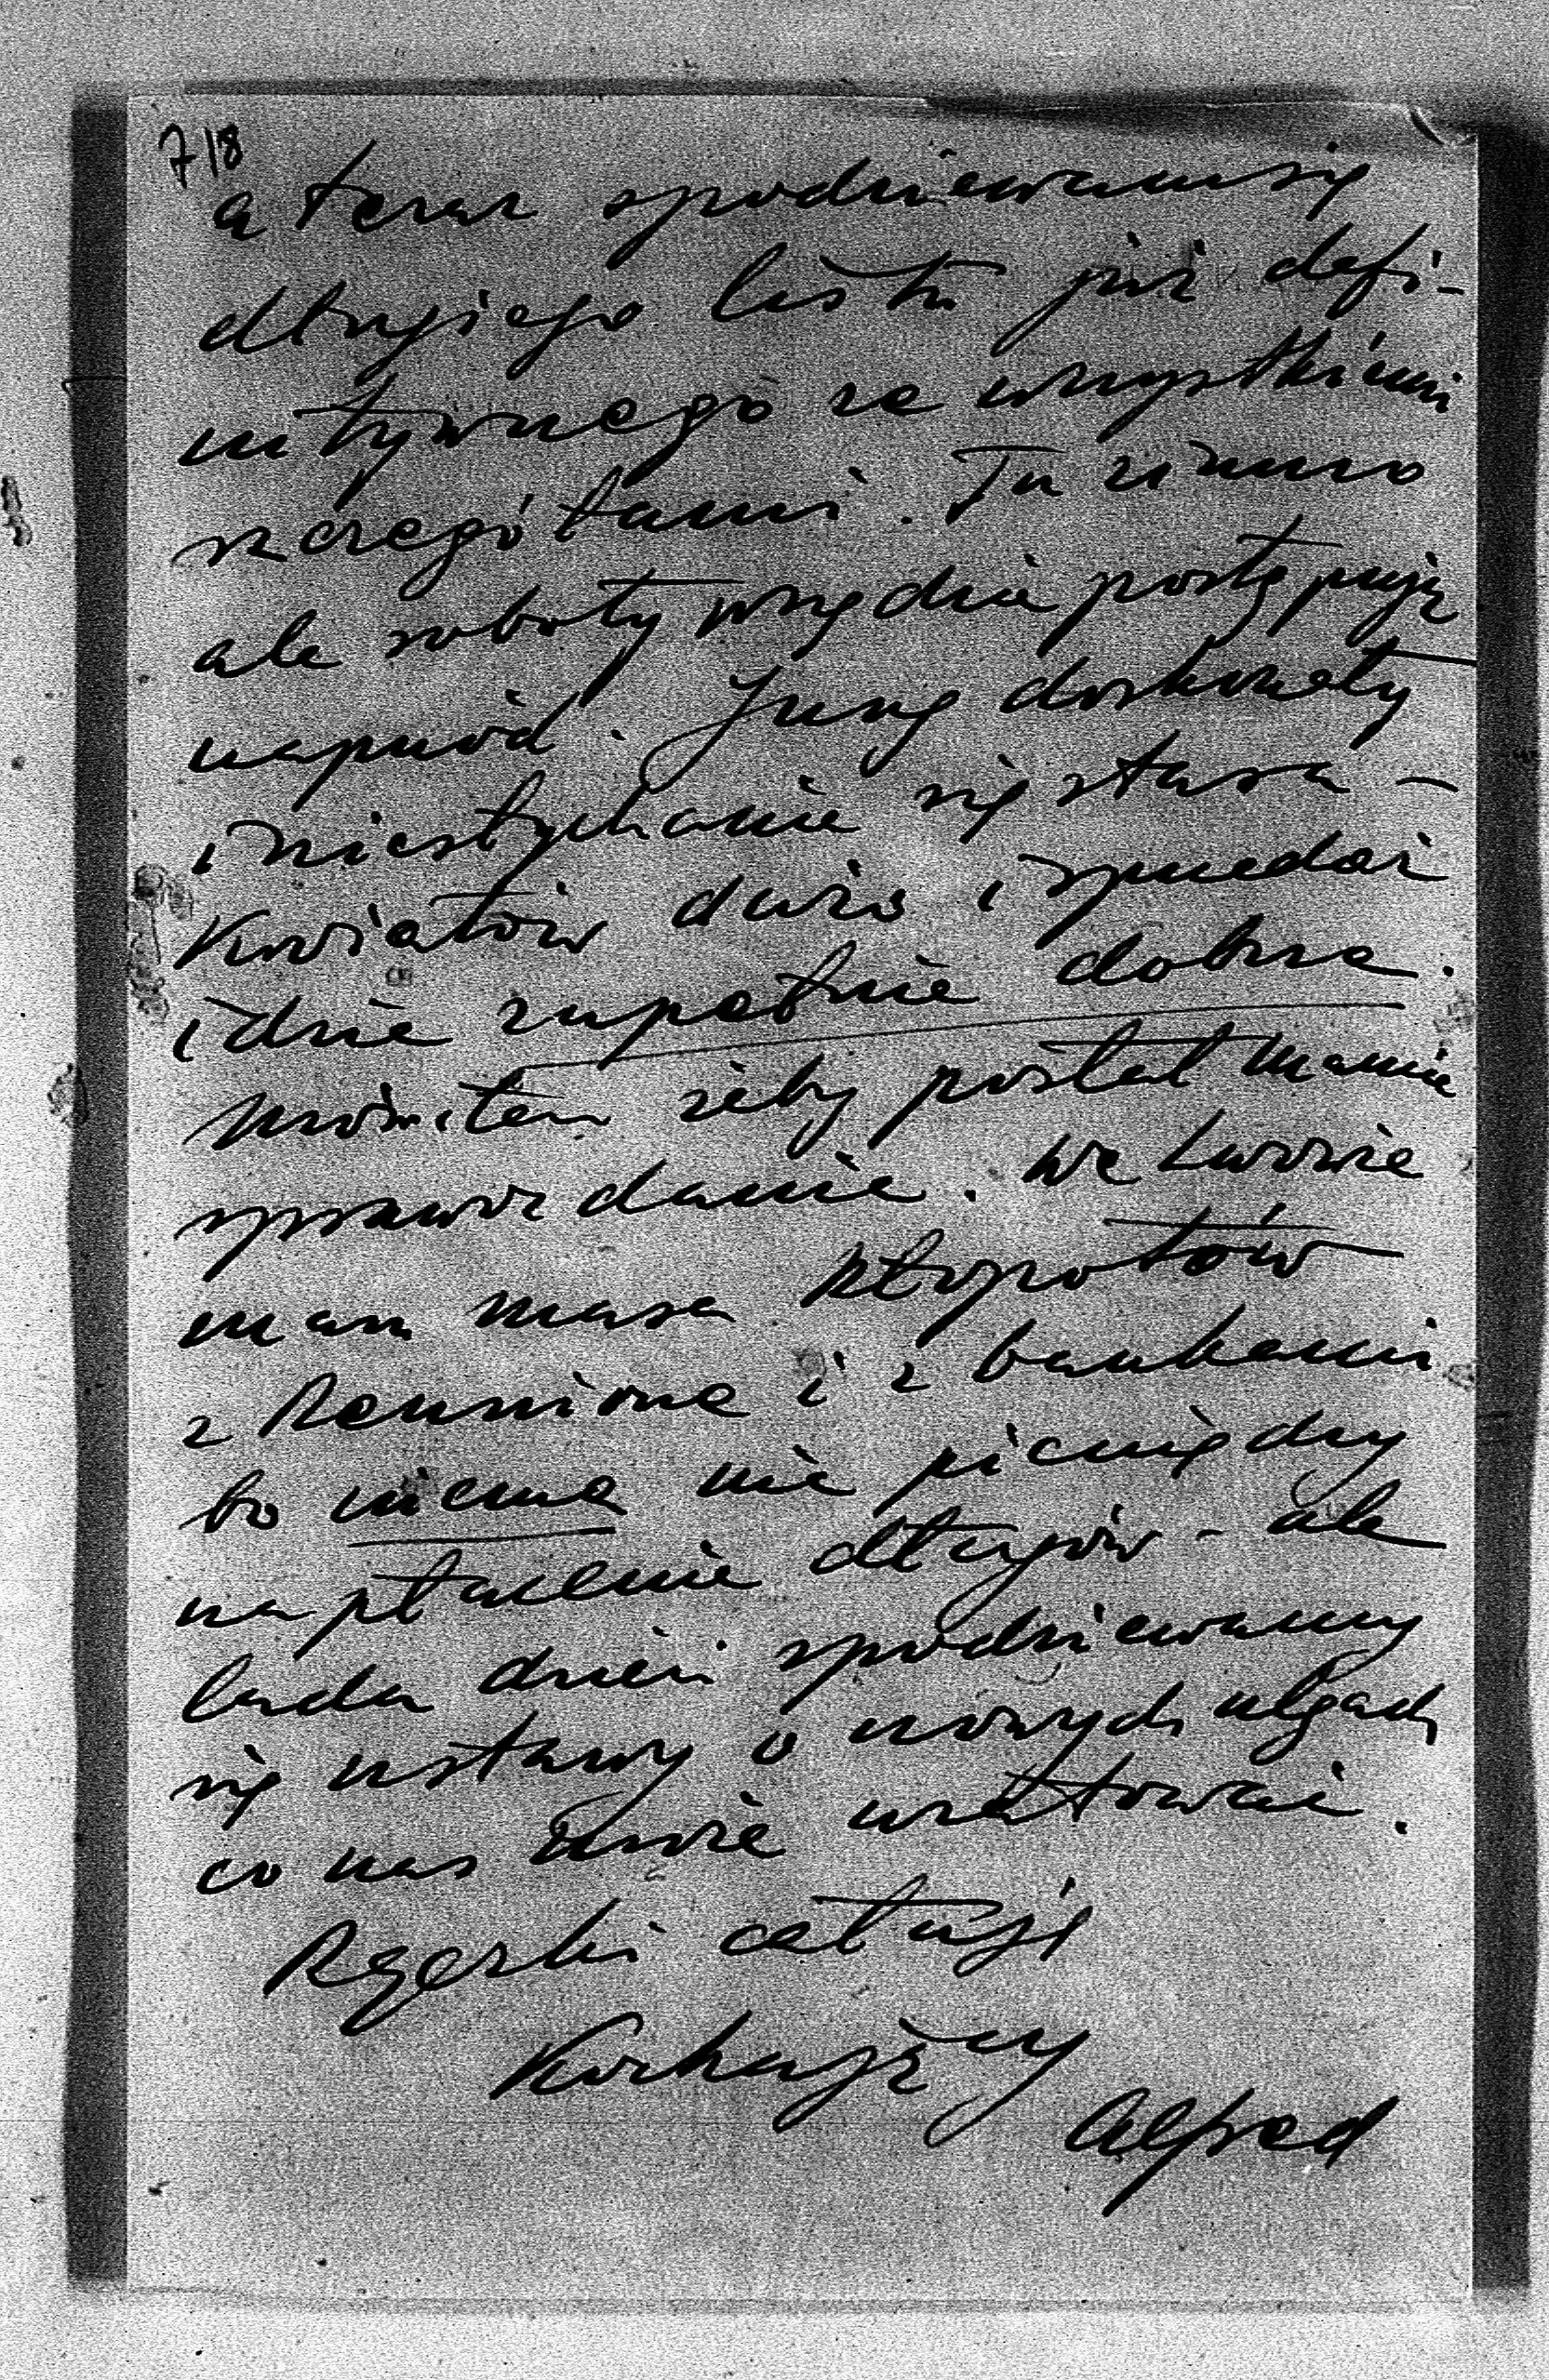 718
a teraz spodziewam się
długiego listu już defi-
nitywnego ze wszystkiemi
szczegółami. Tu zimno
ale roboty wszędzie postępują
naprzód. Jung doskonały
i niesłychanie się stara –
Kwiatów dużo i sprzedaż
idzie zupełnie dobrze.
Mówiłem żeby posłał Mamie
sprawozdanie. We Lwowie
mam masa kłopotów
z Reunione i z bankami
bo niema nic pieniędzy
na płacenie długów - ale
lada dzień spodziewamy
się ustawy o nowych ulgach
co nas może uratować.
Rączki całuję
Kochający
Alfred